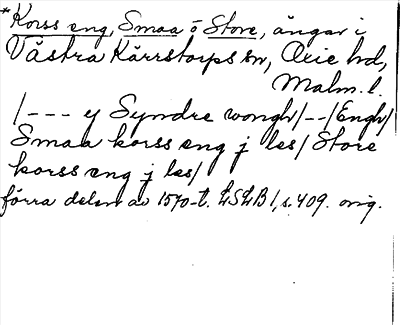 *Korss eng, Smaa o Store, ängar i
Västra Kärrstorps sn, Oxie hd,
Malm. l.
/--- y Syndre wongh/--/Engh/
Smaa korss eng j les/ Store
korss eng j les/
förra delen av 1570-t. LSLB 1, s. 409. orig.